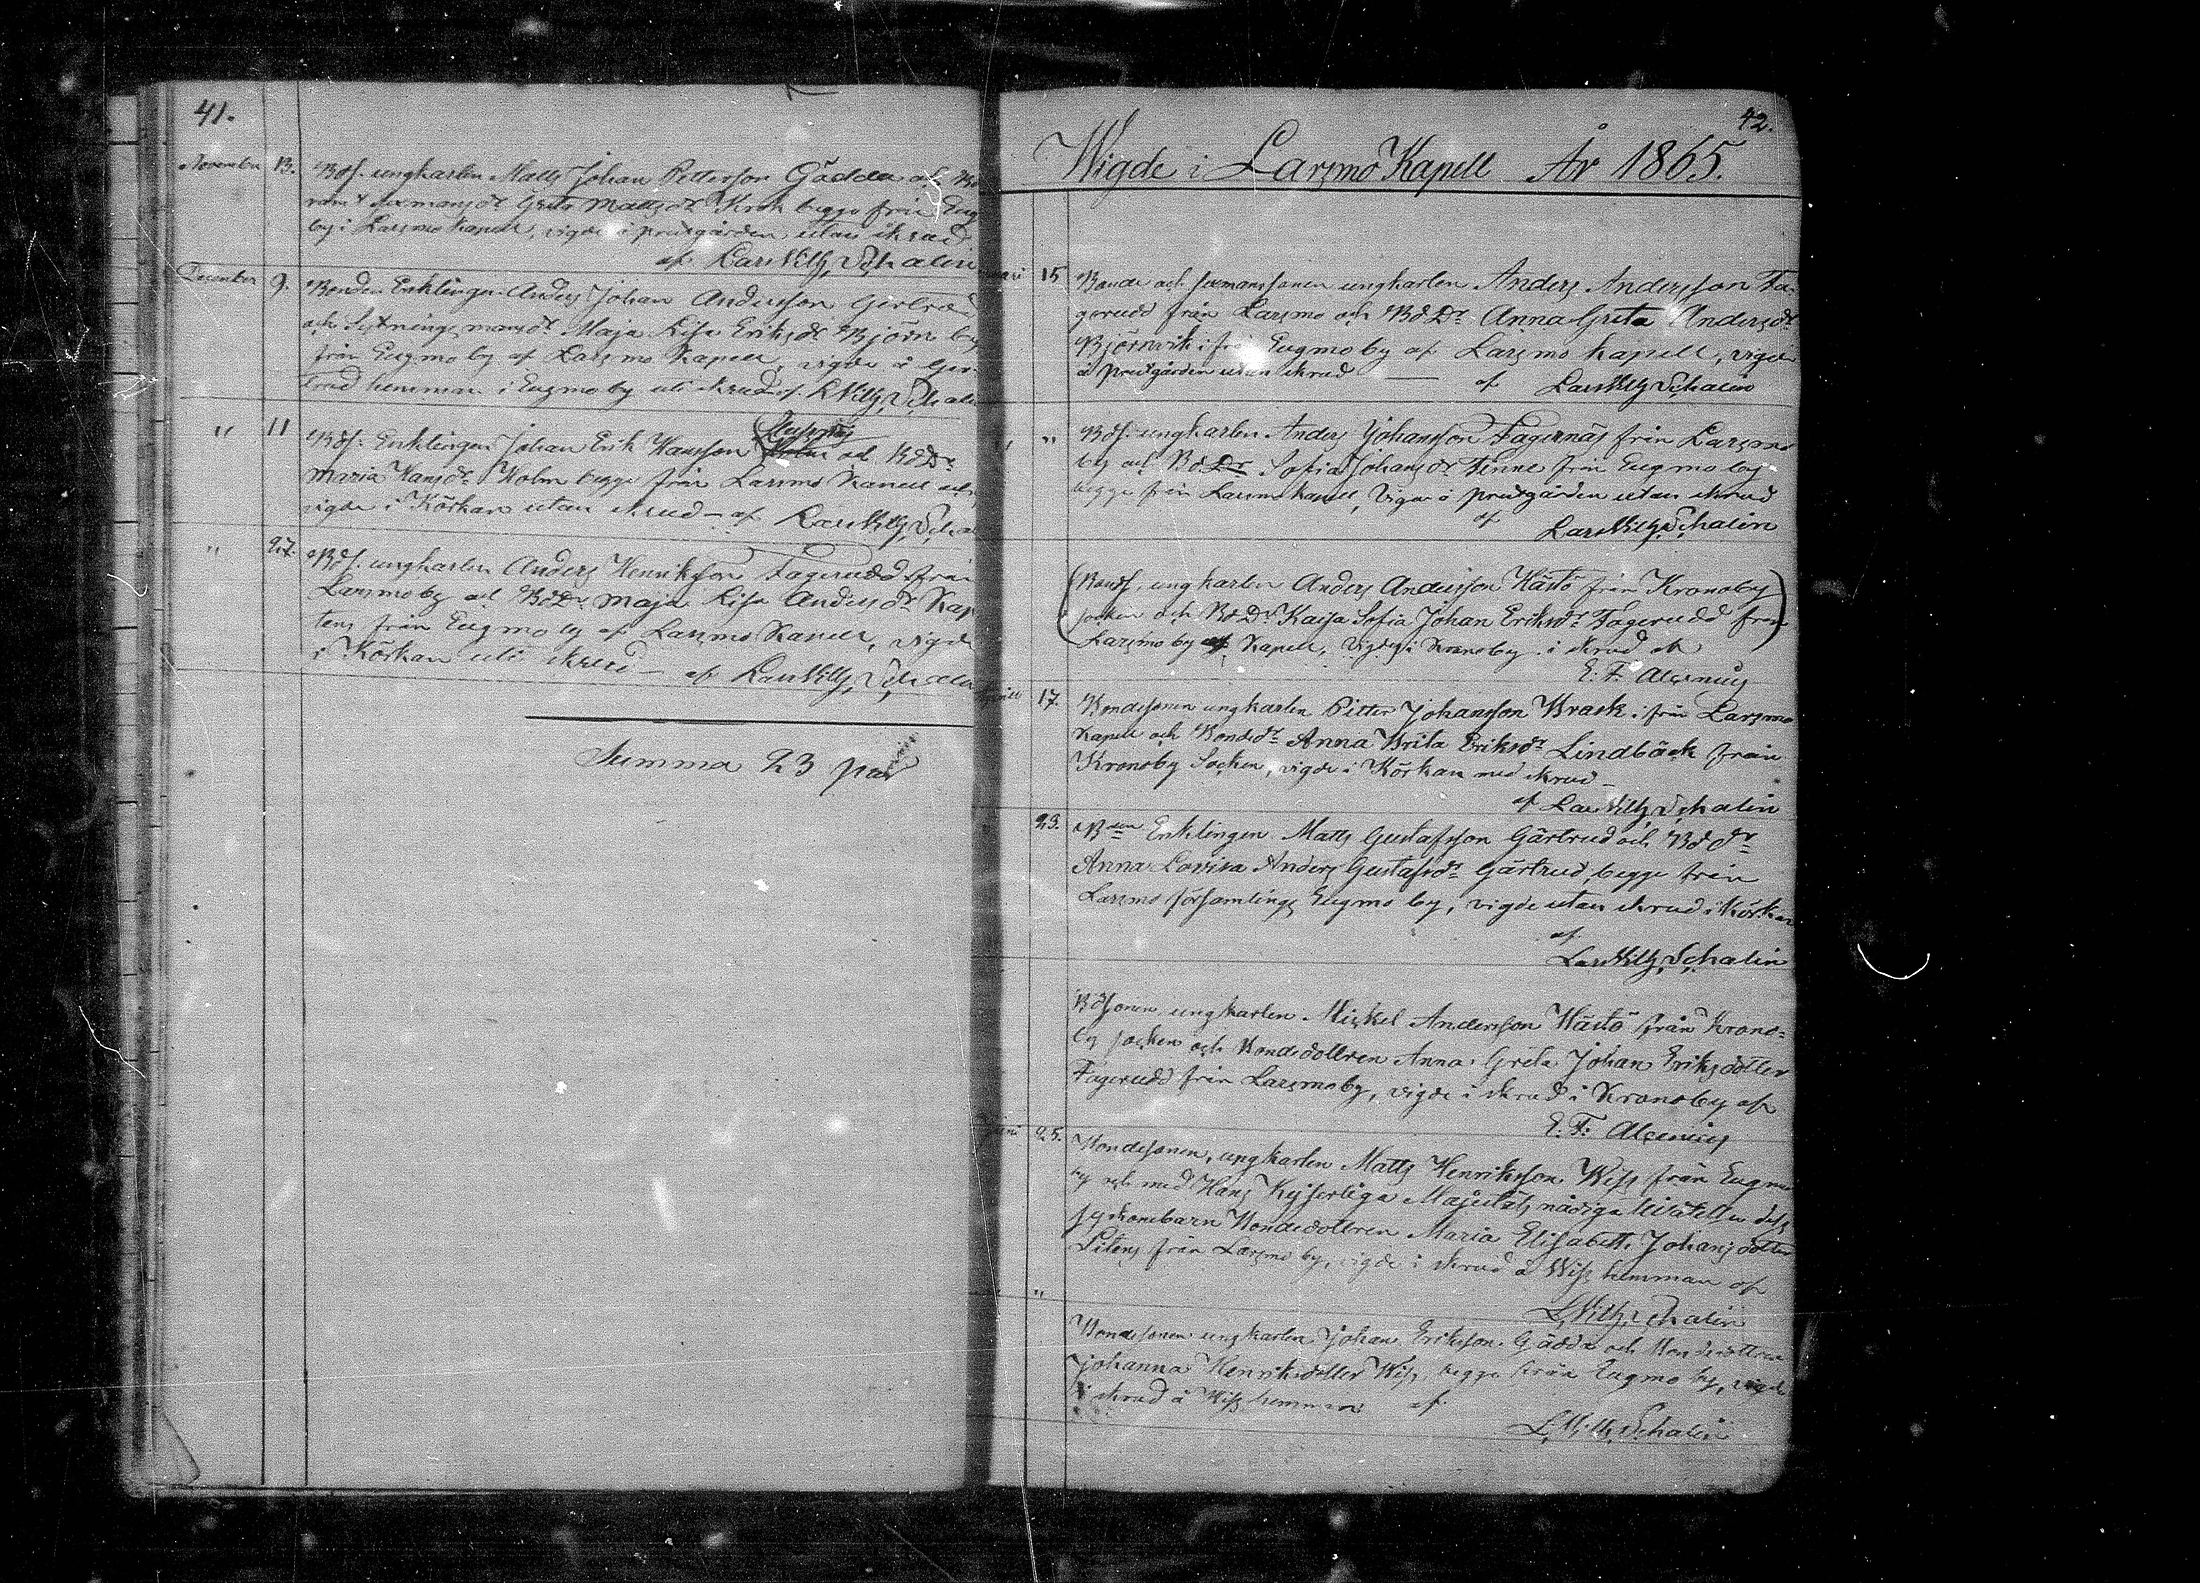 41.
November 13. Bdf. ungkarlen Matts Johan Pettersson Gädda och
Greta Mattsdr Krok begge från Eug
by i Larsmo Kapell, vigde å prestgården utan skrud
af Lars Wilh. Schalin
December 9. Bonden Enklingen Anders Johan Andersson Gertrud
och Sytningsmansdr Maja Lisa Eriksdr Björn
från Eugmo by af Larsmo Kapell, vigde å Ger-
trud hemman i Eugmo by uti skrud af L Wilh. Schalin
" 11 Bdf. Enklingen Johan Erik Hansson och BdDr
Maria Hansdr Holm begge från Larsmo Kapell och
vigde i Körkan utan skrud – af Lars Wilh. Scha
" 27. Bdf. ungkarlen Anders Henriksson Fagerudd från
Larsmo by och BdDr Maja Lisa Andersdr Kap
tens från Eugmo by af Larsmo Kapell, vigde
i Körkan uti skrud – af Lars Wilh. Schalin
Summa 23 par
42.
Wigde i Larsmo Kapell År 1865.
15 Bonde och sexmanssonen ungkarlen Anders Andersson Fa-
gerudd från Larsmo och BdDr Anna Greta Andersdr
Björnvik ifrån Eugmo by af Larsmo Kapell, vigde
å prestgården utan skrud — af Lars Wilh. Schalin
" Bdf. ungkarlen Anders Johansson Fagernäs från Larsmo
by och BdDr Sofia Johansdr Finne från Eugmo by
begge från Larsmo kapell, vigde å prestgården utan skrud
af Lars Wilh. Schalin
(Bondf. ungkarlen Anders Andersson Hästö från Kronoby
socken och BdDr Kajsa Sofia Johan Eriksdr Fagerudd från
Larsmo by af Kapell, vigde i Kronoby i skrud af)
E. F. Alcenius
April 17. Bondesonen ungkarlen Petter Johansson Brask ifrån Larsmo
Kapell och Bondedr Anna Brita Eriksdr Lindbäck från
Kronoby Socken, vigde i Körkan med skrud –
af Lars Wilh. Schalin
23. Bden Enklingen Matts Gustafsson Gärtrud och Bd Dr
Anna Lovisa Anders Gustafsdr Gärtrud, begge från
Larsmo församlings Eugmo by, vigde utan skrud i Körkan
af
Lars Wilh. Schalin
Bdsonen ungkarlen Mickel Andersson Hästö från Krono-
by socken och Bondedottren Anna Greta Johan Eriksdotter
Fagerudd från Larsmo by, vigde i skrud i Kronoby af
E. F. Alcenius
Juni 25. Bondesonen, ungkarlen Matts Henriksson Wiss från Eugmo
by och med Hans Kejserliga Majestäts nådiga tillåtelse dess
syskonebarn Bondedottren Maria Elisabeth Johansdotter
från Larsmo by, vigde i skrud å Wiss hemman af
L. Wilh. Schalin
" Bondesonen ungkarlen Johan Eriksson Gädda och Bondedottren
Johanna Henriksdotter Wiss, begge från Eugmo by, vigde
i skrud å Wiss hemman af
L. Wilh. Schalin